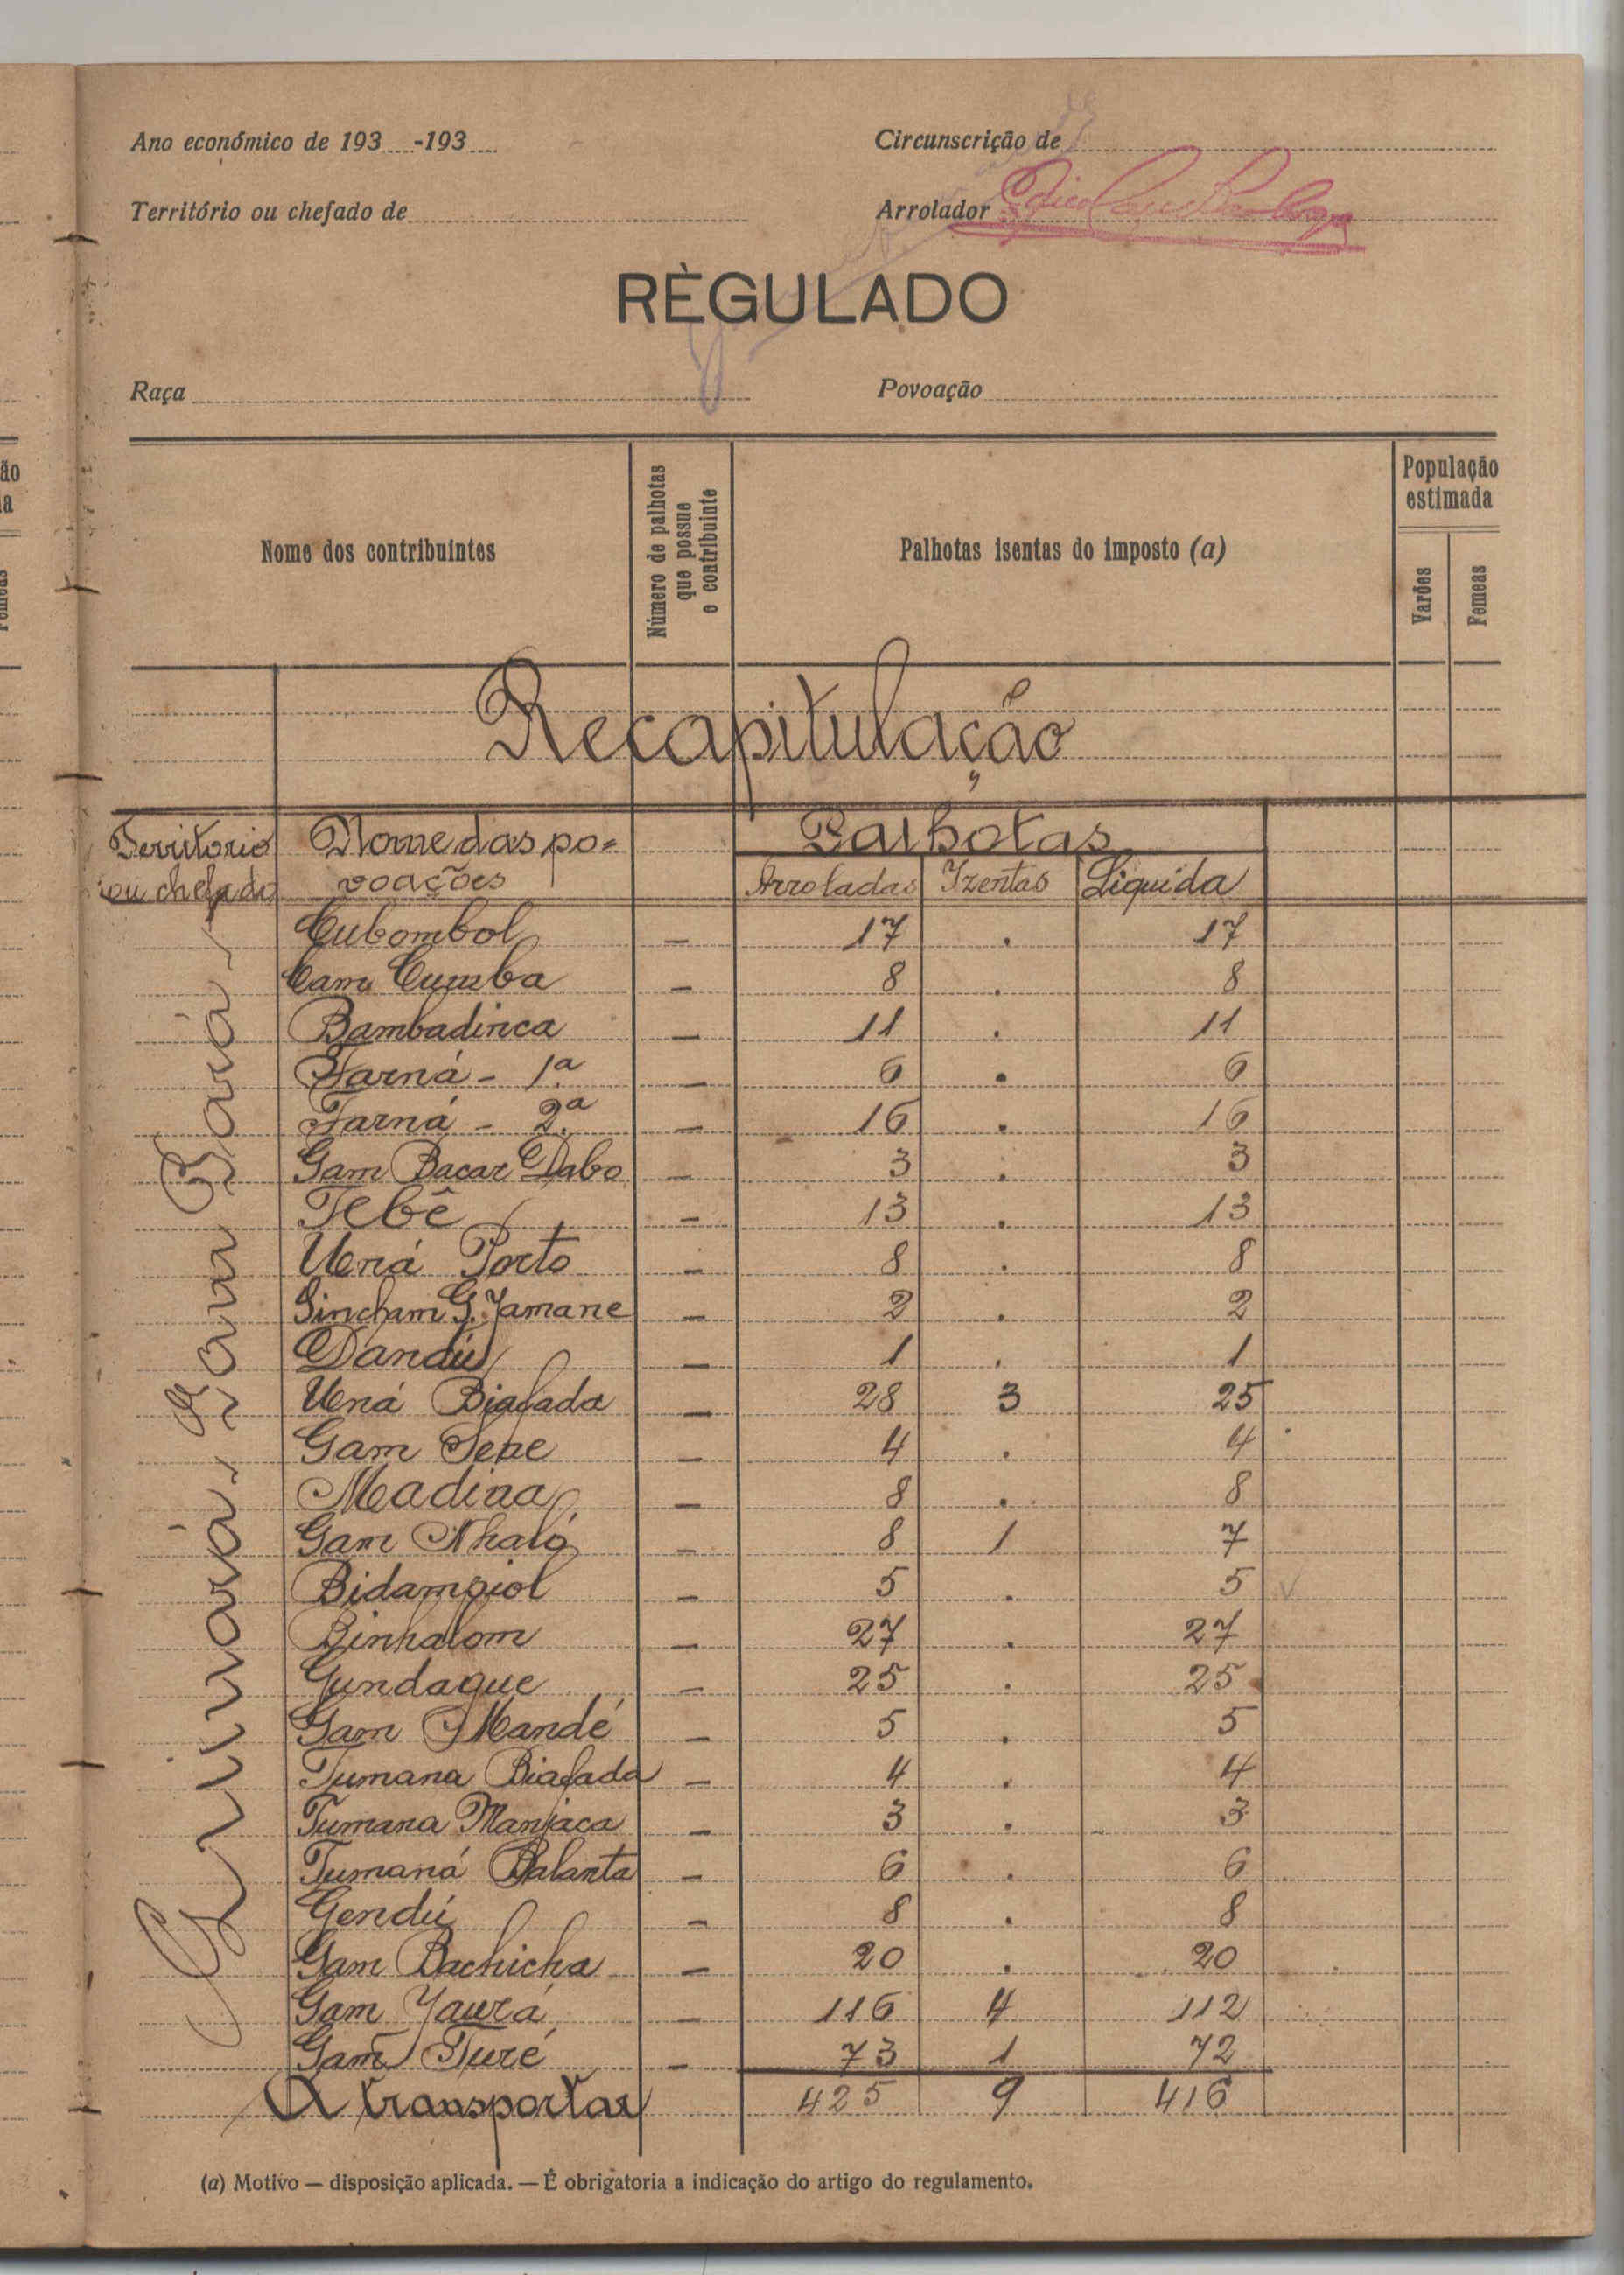 Ano económico de 193 -193
Circunscrição de
Território ou chefado de
Arrolador
RÈGULADO
Raça
Povoação
Nome dos contribuintes
Número de palhotas que possue o contribuinte
Palhotas isentas do imposto (a)
População estimada
Varões
Femeas
Recapitulação
Territorio ou chefado
Nome das po=
voações
Palhotas
Arroladas Izentas Liquida
Cubombol - 17 . 17
Cam Cumba - 8 . 8
Bambadinca - 11 . 11
Farná - 1.ª - 6 . 6
Farná - 2.ª - 16 . 16
Gam Bacar Dabo - 3 . 3
Tebê - 13 . 13
Uená Porto - 8 . 8
Sincham G. Jamane - 2 . 2
Dandú - 1 . 1
Uená Biafada - 28 3 25
Gam Sene - 4 . 4
Madina - 8 . 8
Gam Nhaló - 8 1 7
Bidampiol - 5 . 5
Binhalom - 27 . 27
Gundague - 25 . 25
Gam Mandé - 5 . 5
Tumana Biafada - 4 . 4
Tumana Manjaca - 3 . 3
Tumaná Balanta - 6 . 6
Gendú - 8 . 8
Gam Bachicha - 20 . 20
Gam Jaurá - 116 4 112
Gam Turé - 73 1 72
A transportar 425 9 416
(a) Motivo — disposição aplicada. — É obrigatoria a indicação do artigo do regulamento.